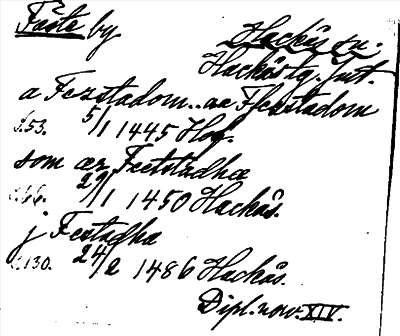 Fäste by.
Hackås sn.
Hackås tg. Jmt.
a Fezstadom.. aa Ffezstadom
s.53. 5/1 1445 Hov.
som ær Feetstadha
s.66. 29/1 1450 Hackås.
j Festadha
s.130. 24/2 1486 Hackås.
Dipl. nov. XIV.